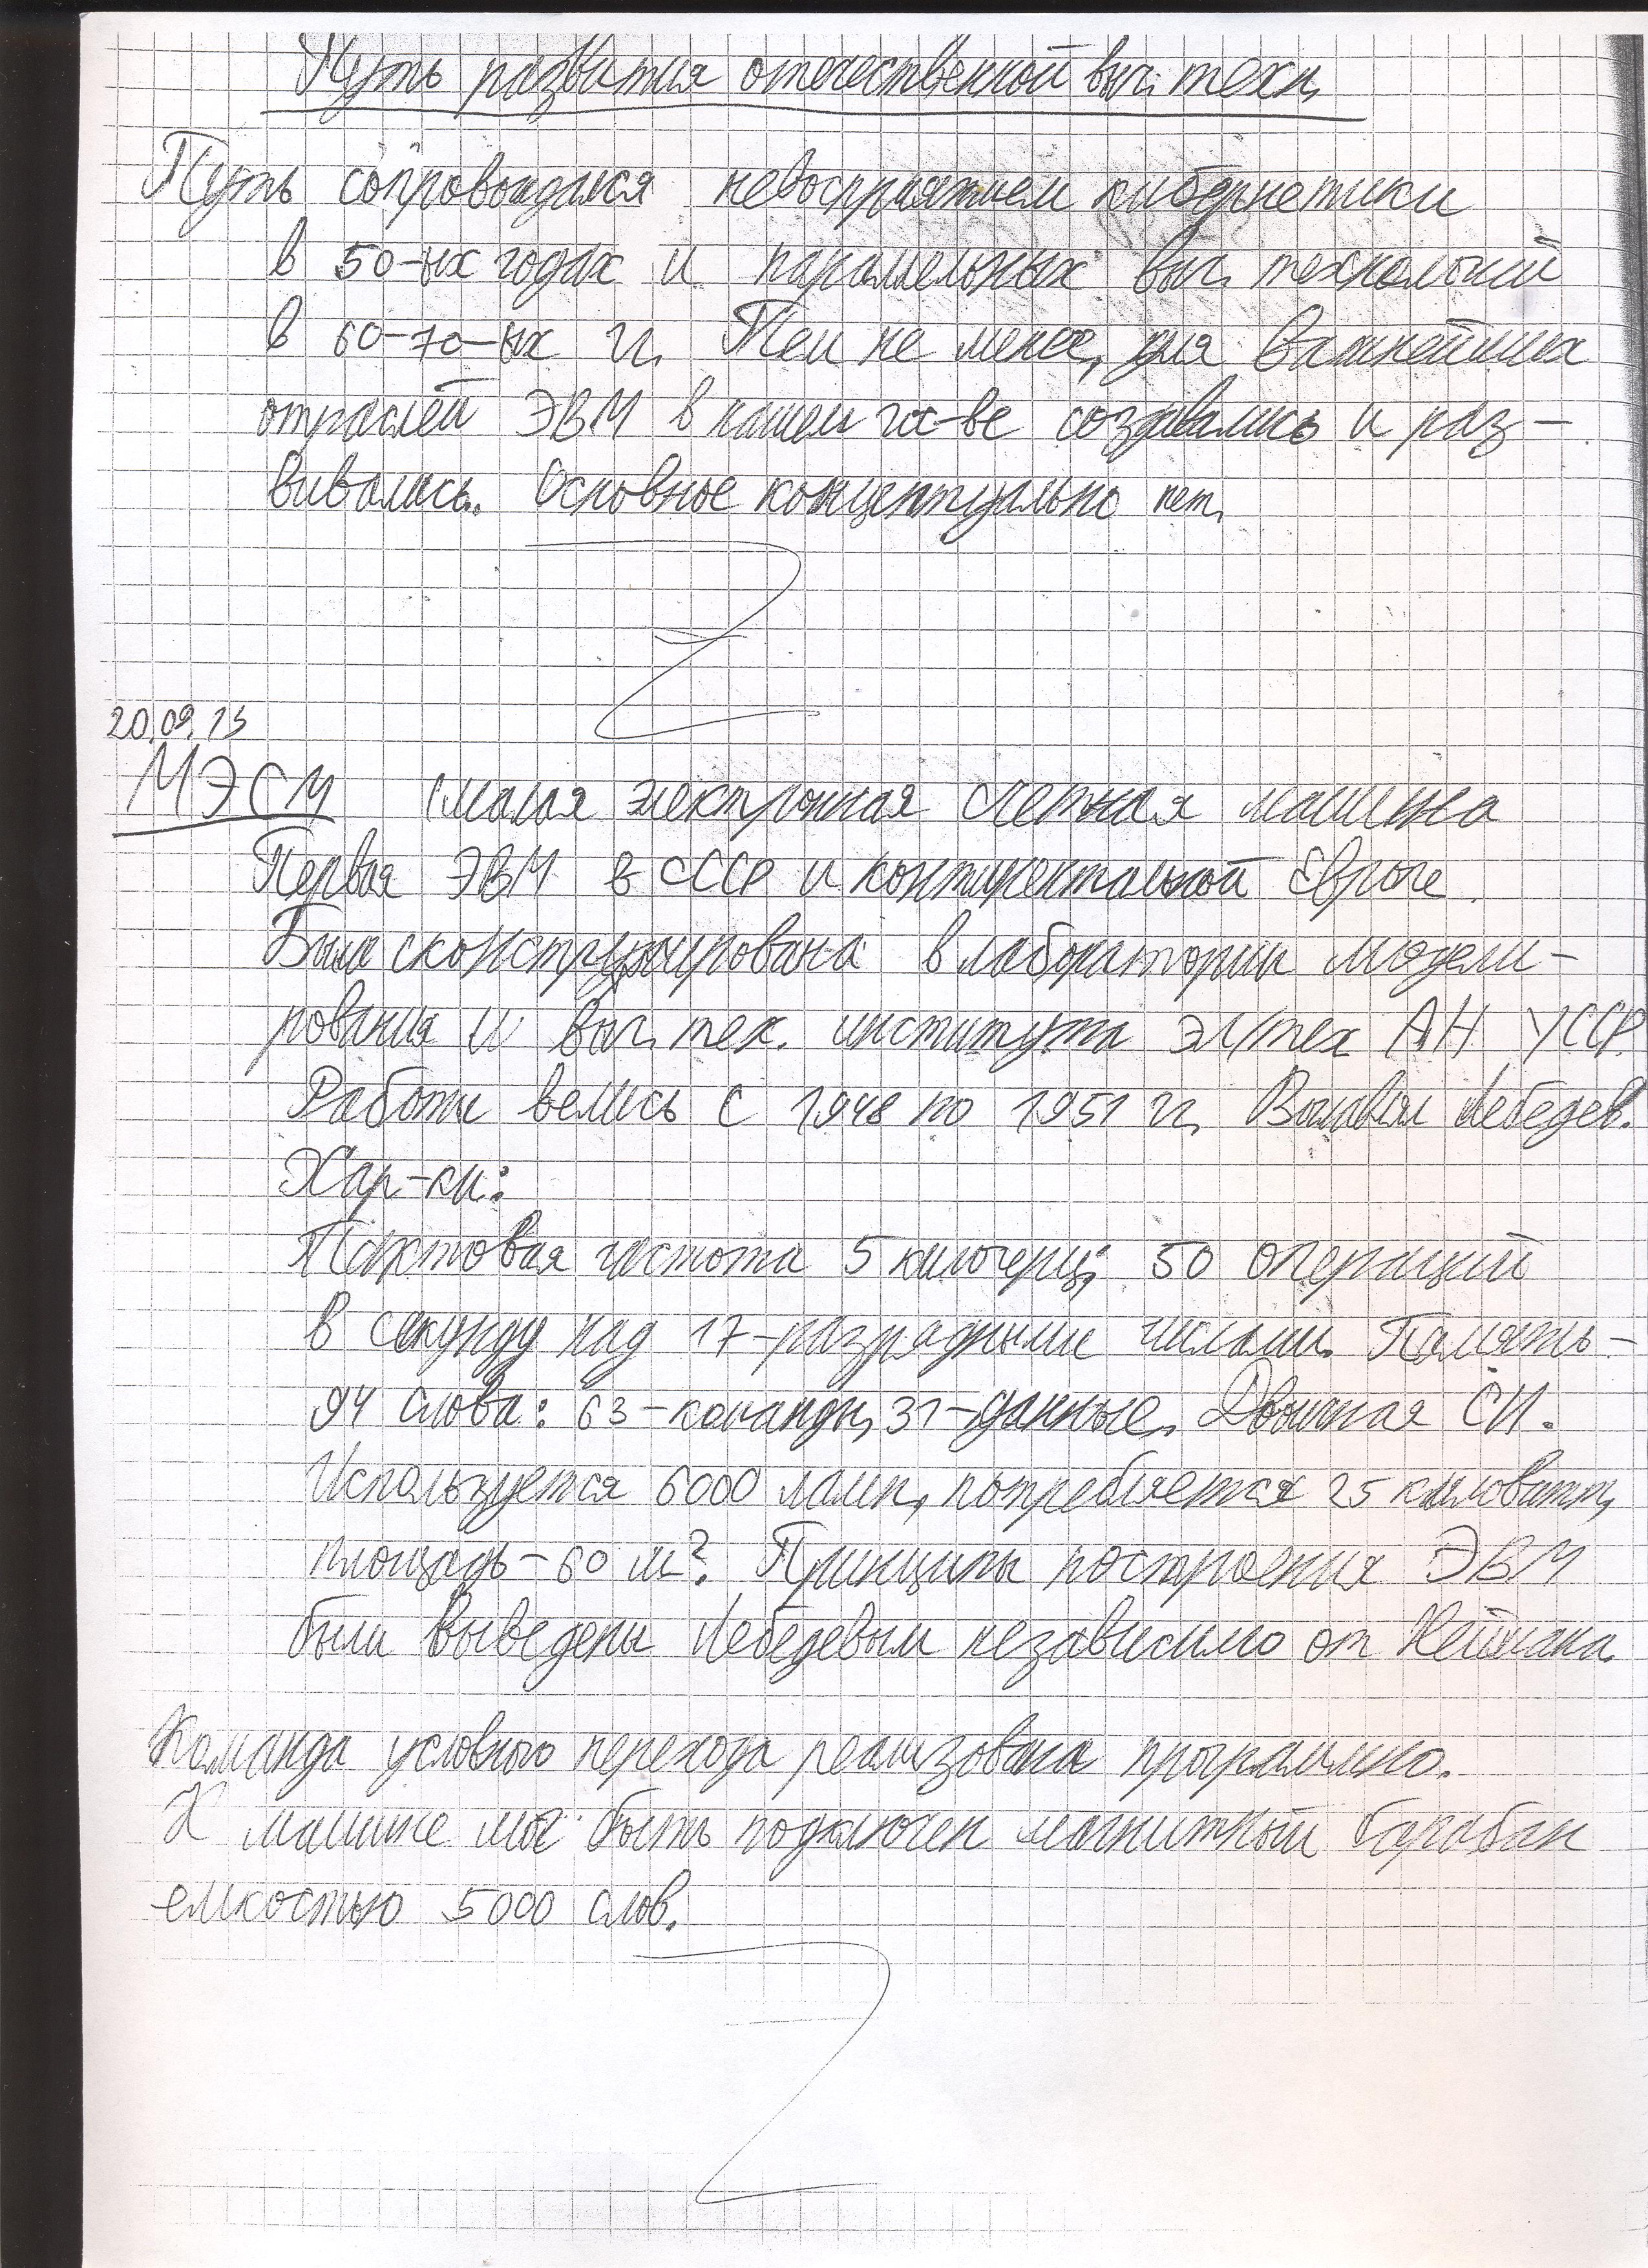 Путь развития отечественной выч. техн.
Путь сопровождался невосприятием кибернетики
в 50-ых годах и параллельных выч. технологий
в 60-70-ых гг. Тем не менее, для важнейших
отраслей ЭВМ в нашем гос-ве создавались и раз-
вивались. Основное концептуально нет.
20.09.13
МЭСМ (малая электронная счетная машина
Первая ЭВМ в СССР и континентальной Европе.
Была сконструирована в лаборатории модели-
рования и выч. тех. института эл/тех АН УССР.
Работы велись с 1948 по 1951 гг. Возглавлял Лебедев.
Хар-ки:
Тактовая частота 5 килогерц; 50 операций
в секунду над 17-разрядными числами. Память -
94 слова: 63-команды, 31-данные. Двоичная СИ.
Используется 6000 ламп, потребляется 25 киловатт,
площадь - 60 м². Принципы построения ЭВМ
были выведены Лебедевым независимо от Неймана.
Команда условного перехода реализована программно.
К машине мог быть подключен магнитный барабан
емкостью 5000 слов.